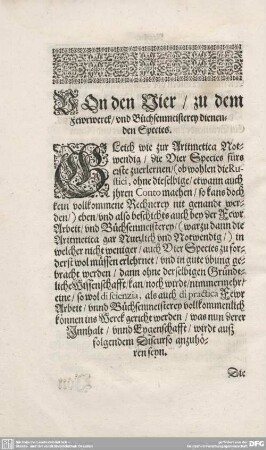 Von den Vier / zu dem
Fewrwerck / vnd Büchsenmeisterey dienen-
den Species.
GLeich wie zur Aritmetica Not-
wendig / die Vier Species fürs
erste zuerlernen / (ob wohlen die Ru-
stici, ohne dieselbige / etwann auch
jhren Conto machen / so kan doch
kein vollkommene Rechnerey nit genandt wer-
den /) eben / vnd also beschichts auch bey der Fewr
Arbeit / vnd Büchsenmeisterey / (warzu dann die
Aritmetica gar Nutzlich vnd Notwendig /) in
welcher nicht weniger / auch Vier Species zu for-
derst wol müssen erlehrnet / vnd in gute vbung ge-
bracht werden / dann ohne derselbigen Gründt-
liche Wissenschafft / kan / noch wirdt / nimmermehr /
eine / so wol di scienzia, als auch di practica Fewr
Arbeit / vnnd Büchsenmeisterey vollkommenlich
können ins Werck gericht werden / was nun derer
Innhalt / vnnd Eygenschafft / wirdt auß
folgendem Discurso anzuhö-
ren seyn.
Die